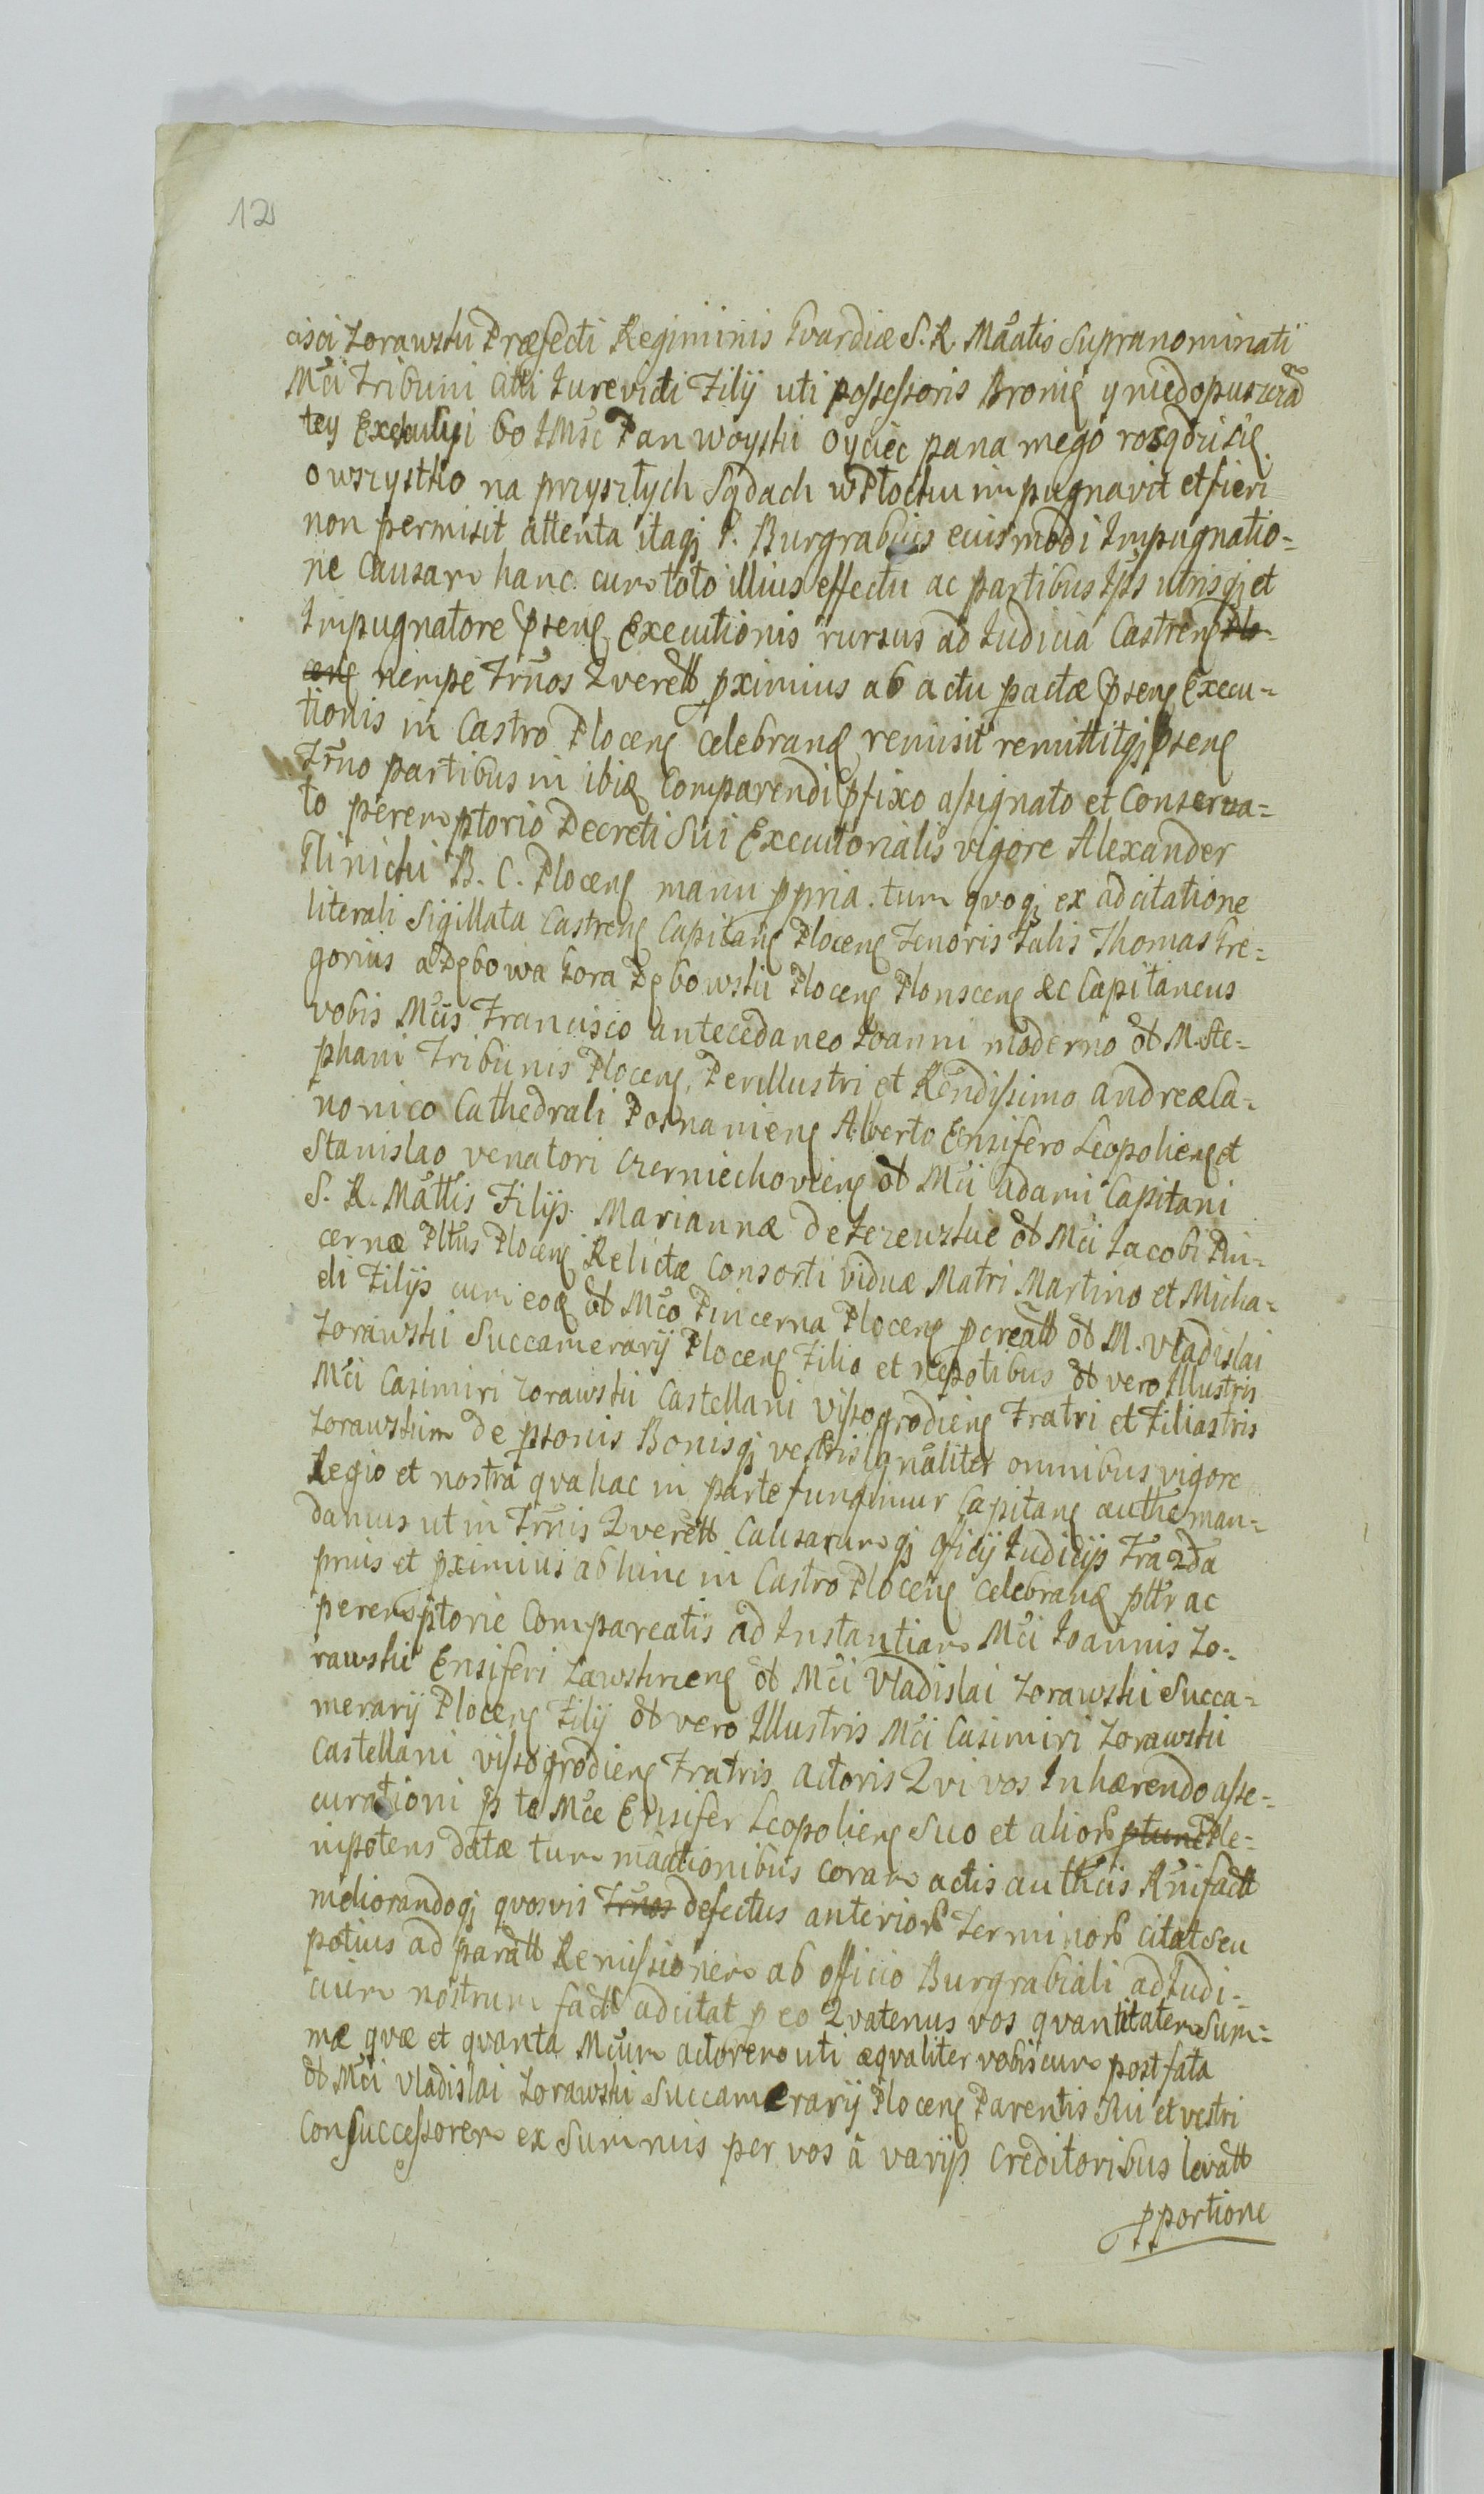 12
cisci Zorawski Præfecti Regiminis Gvardiæ S. R. Mãatis Supranominati
Mci Tribuni atti Jurevicti Filij uti possessoris Bronię y niedopuszczã
tey Exekucyi bo JMsc Pan Woyski oyciec pana mego rosądzi się
o wszystko na przyszłych Sądach w Płocku impugnavit et fieri
non permisit attenta itaqȝ P. Burgrabius eiusmodi Impugnatio=
ne Causam hanc cum toto illius effectu ac partibus Ips utrisqȝ et
Impugnatore pseng Executionis rursus ad Judicia Castreng Plo-
ceng nempe Trnos Qverell pximius ab actu pactæ pseng Execu=
tionis in Castro Ploceng celebrang remisit remittitqȝ pseng
Trno partibus in ibiq Comparendi pfixo assignato et Conserva=
to peremptorio Decreti Sui Executorialis vigore Alexander
Glinicki B. C. Ploceng manu ppria. tum qvoqȝ ex adcitatione
literali Sigillata Castreng Capitang Ploceng Tenoris Talis Thomas Gre=
gorius a Dębowa Gora Dębowski Ploceng Plonsceng &c Capitaneus
vobis Mcis Francisco antecedaneo Joanni moderno ol M. Ste=
phani Tribunis Ploceng, Perillustri et Rendissimo Andreæ Ca=
nonico Cathedrali Posnanieng Alberto Ensifero Leopolieng et
Stanislao venatori Czerniechovieng ol Mci Adami Capitani
S. R. Mattis Filijs Mariannæ de Jezewskie ol Mci Jacobi Pin=
cernæ Pltus Ploceng Relictæ Consorti viduæ Matri Martino et Micha=
eli Filijs cum eoq ol Mco Pincerna Ploceng pcreatt ol M. Vladislai
Zorawski Succamerarij Ploceng Filio et nepotibus ol vero Illustris
Mci Casimiri Zorawski Castellani Vissogrodieng Fratri et Filiastris
Zorawskim de psonis Bonisqȝ vestris gnaliter omnibus vigore
Regio et nostra qva hac in parte fungimur Capitang authe man=
damus ut in Trnis Qverell Causarumqȝ officij Judicijs Trazda
prius et pximius ab hinc in Castro Ploceng celebrang pltr ac
peremptorie Compareatis ad Instantiam Mci Joannis Zo=
rawski Ensiferi Zawskrieng ol Mci Vladislai Zorawski Succa=
merarij Ploceng Filij ol vero Illustris Mci Casimiri Zorawski
Castellani Vissogrodieng Fratris Actoris Qvi vos Inhærendo asse=
curationi p te Mce Ensifer Leopolieng Suo et alior ptunc Ple=
nipotens datæ tum maationibus coram actis authcis Rnifactt
meliorandoqȝ qvosvis Trnos defectus anterior Terminor citat Seu
potius ad paratt Remissionem ab officio Burgrabiali ad Judi=
cium nostrum factt adcitat p eo Qvatenus vos qvantitatem Sum=
mæ qvæ et qvanta Mcum actorem uti æqvaliter vobiscum post fata
ol Mci Vladislai Zorawski Succamerarij Ploceng Parentis Sui et vestri
Consuccessorem ex Summis per vos à varijs Creditoribus levatt
pportione